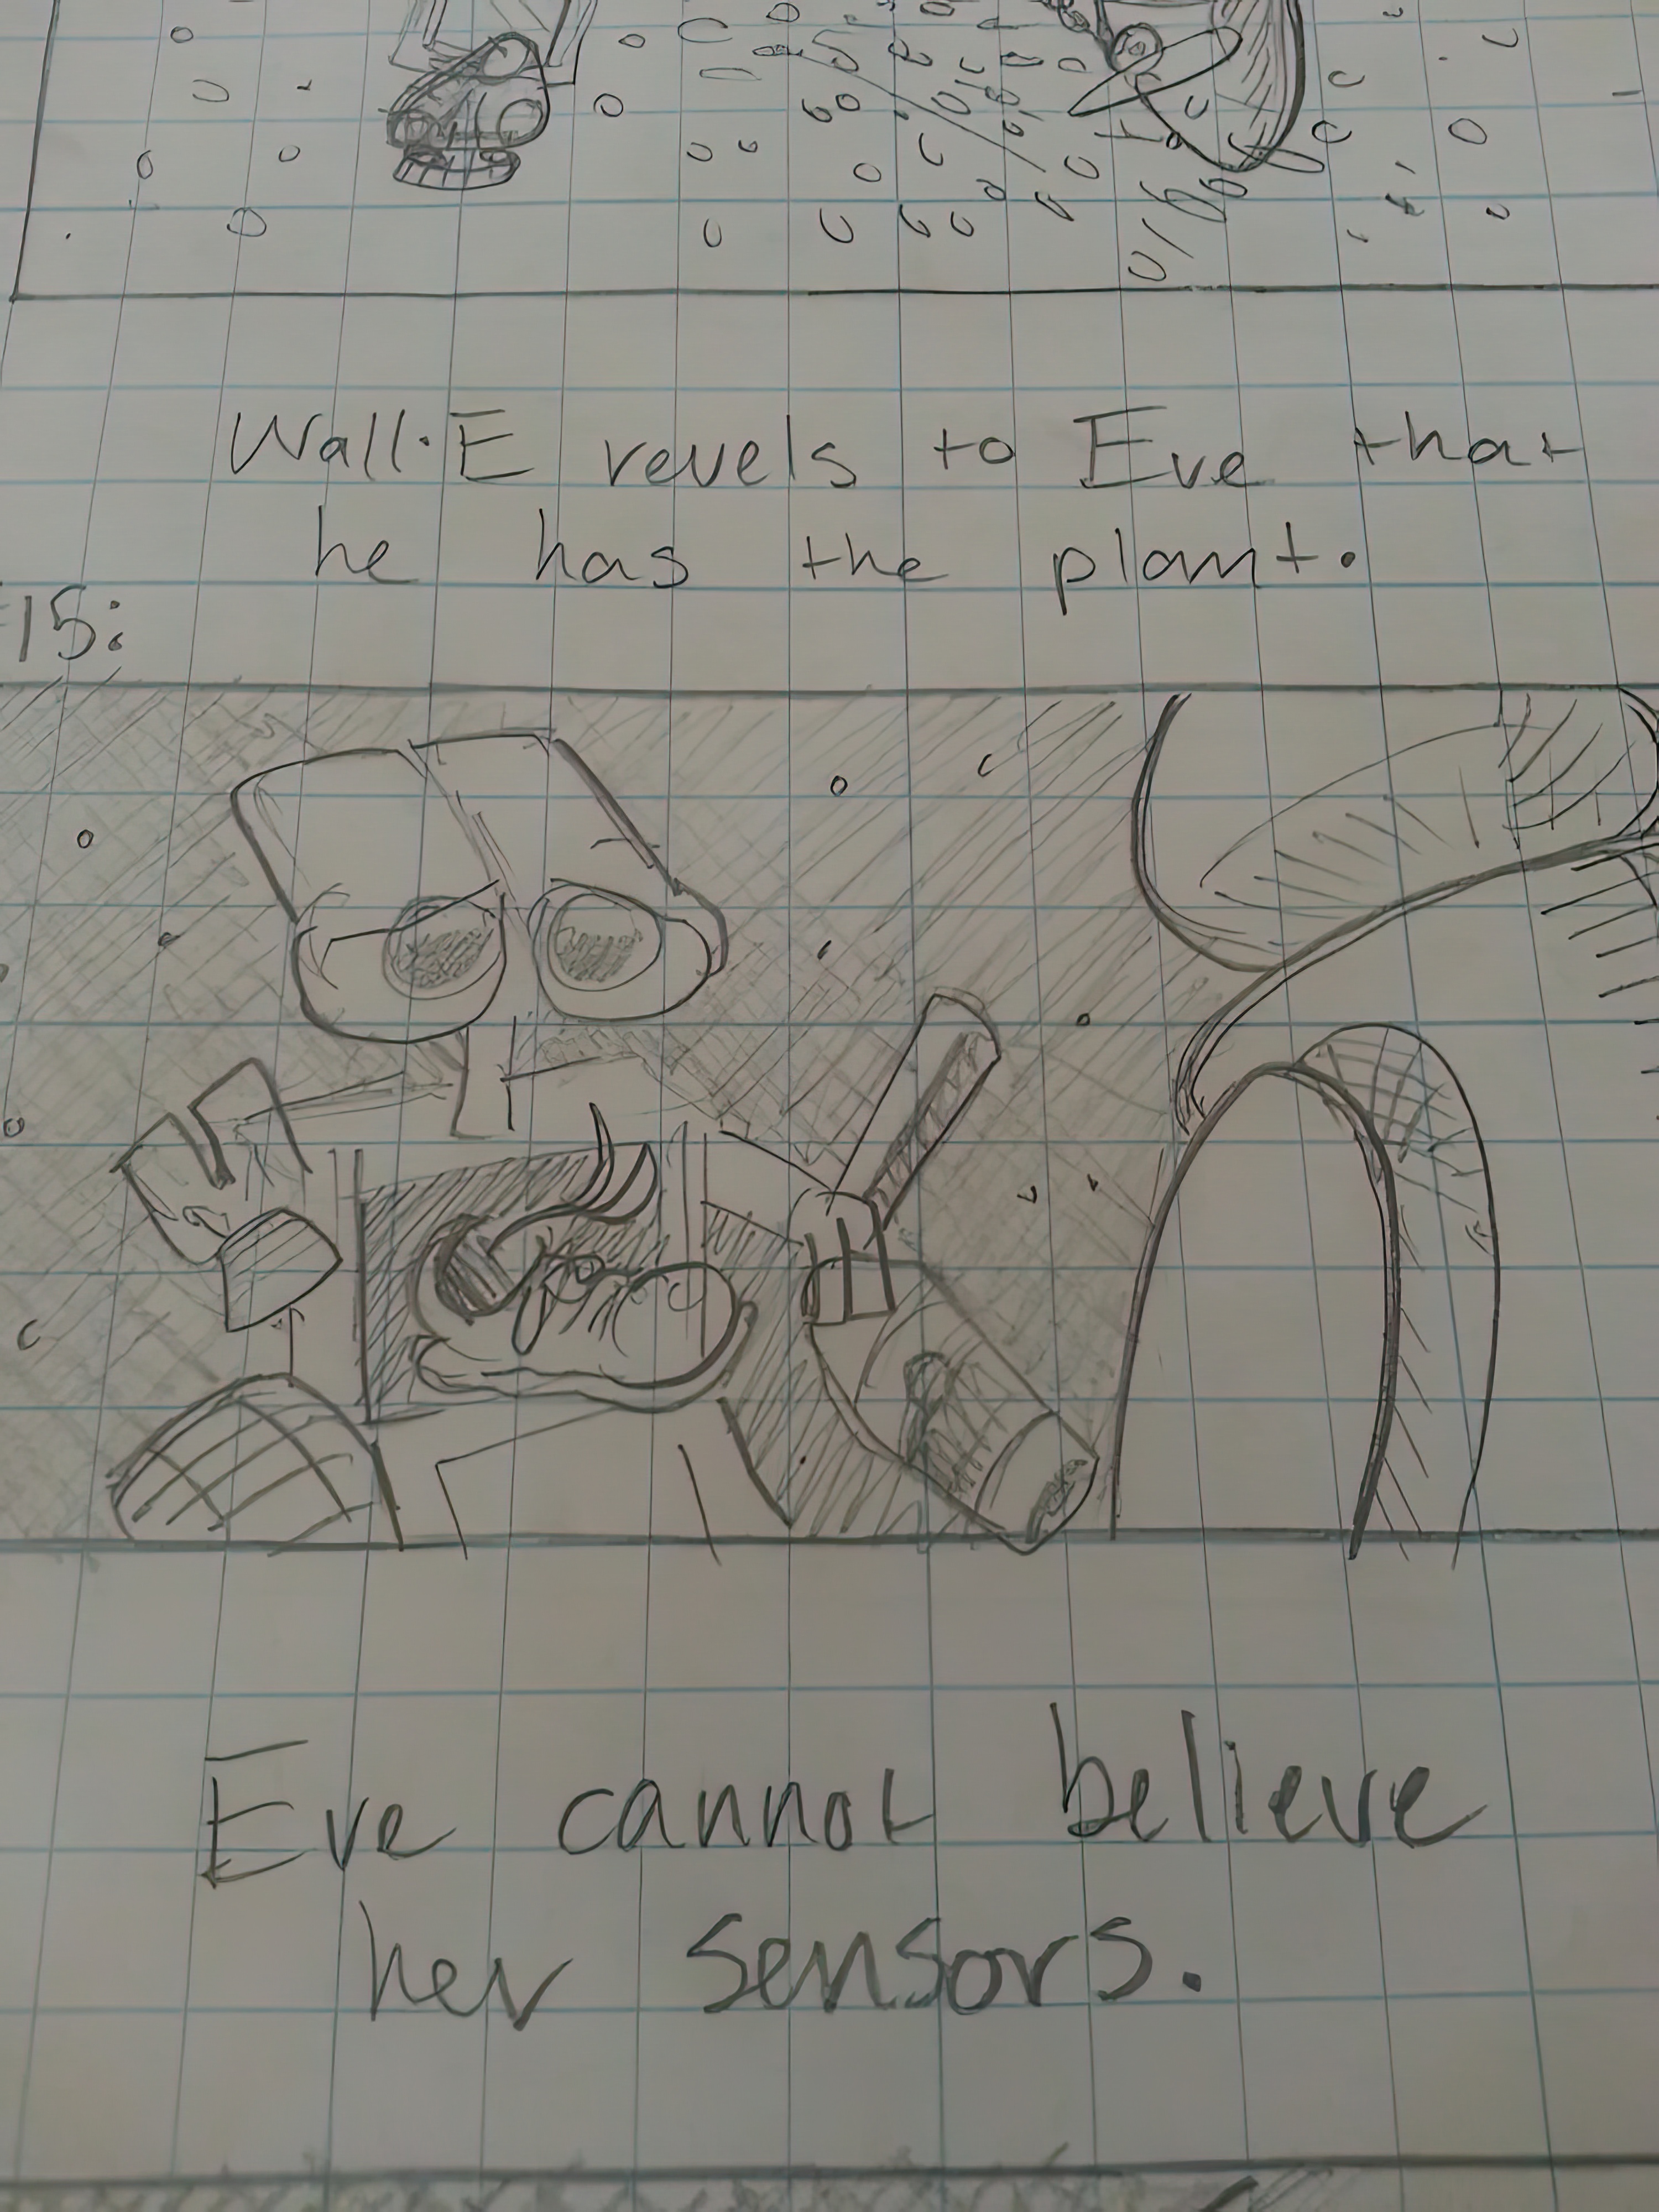 Wall·E revels to Eve that
he has the plant.
15:
Eve cannot believe
her sensors.